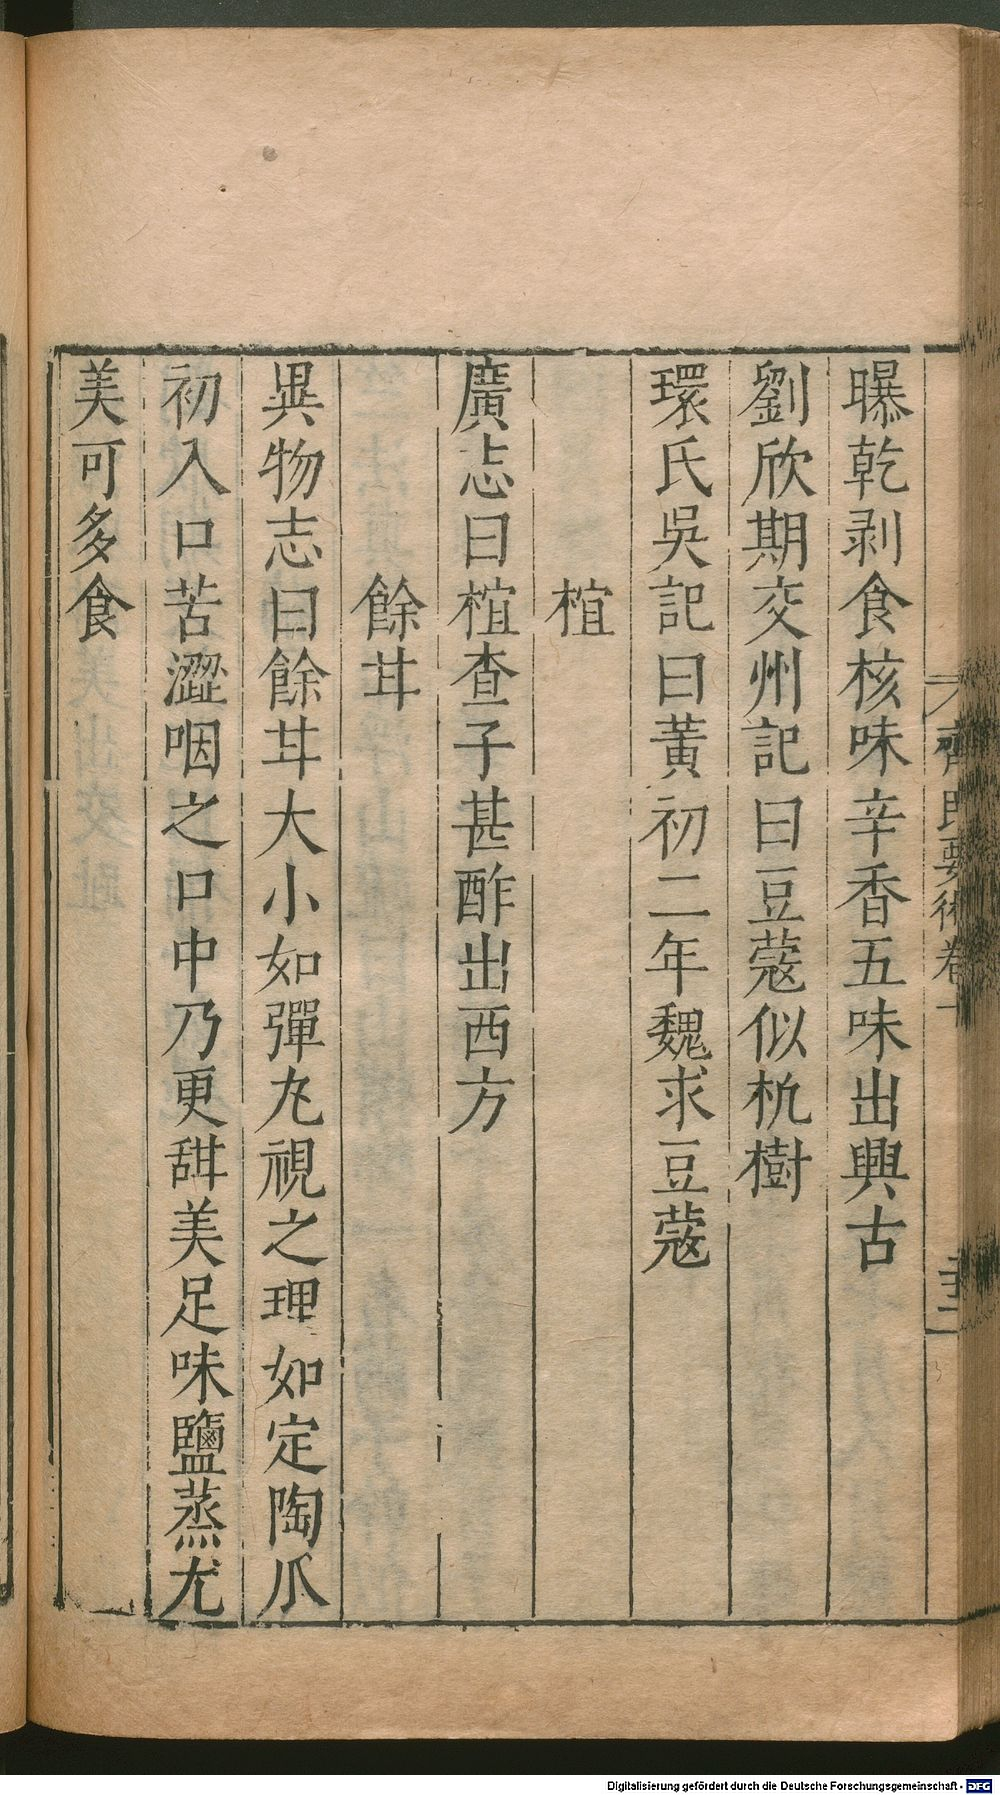 曝乾剥食核味辛香五味出興古
劉欣期交州記曰豆蔻似杬樹
環氏吳記曰黃初二年魏求豆蔻
榿
廣志曰榿查子甚酢出西方
餘甘
異物志曰餘甘大小如彈丸視之理如定陶瓜
初入口苦澀咽之口中乃更甜美足味鹽蒸尤
美可多食
齊民要術卷十
Digitalisierung gefördert durch die Deutsche Forschungsgemeinschaft - DFG